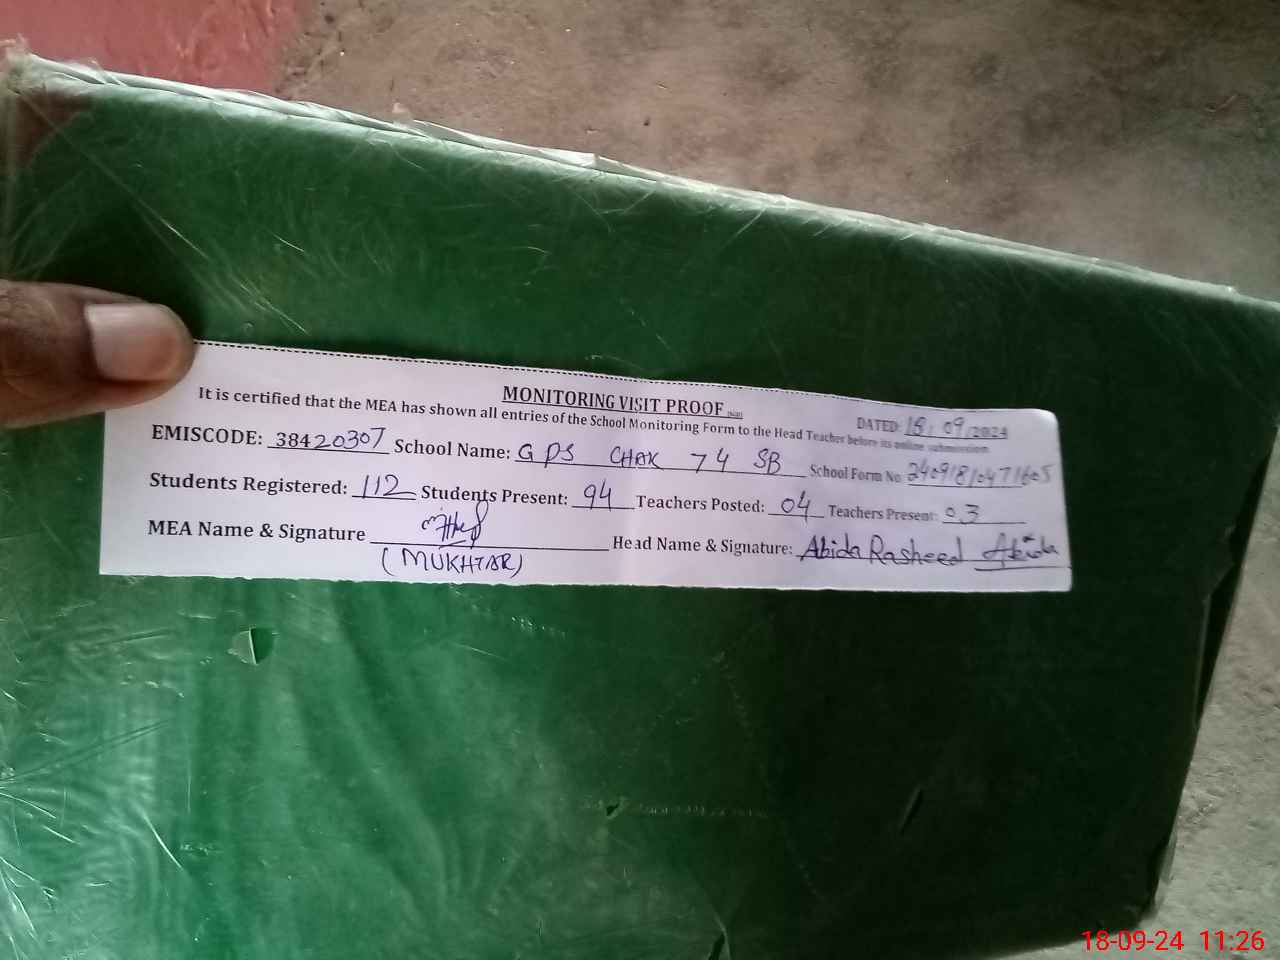 MONITORING VISIT PROOF
DATED: 18/09/2024
It is certified that the MEA has shown all entries of the School Monitoring Form to the Head Teacher before its online submission
EMISCODE: 38420307 School Name: GPS CHAK 74 SB School Form No 24091810471605
Students Registered: 112 Students Present: 94 Teachers Posted: 04 Teachers Present: 03
MEA Name & Signature Head Name & Signature: Abida Rasheed Abida
(MUKHTAR)
18-09-24 11:26